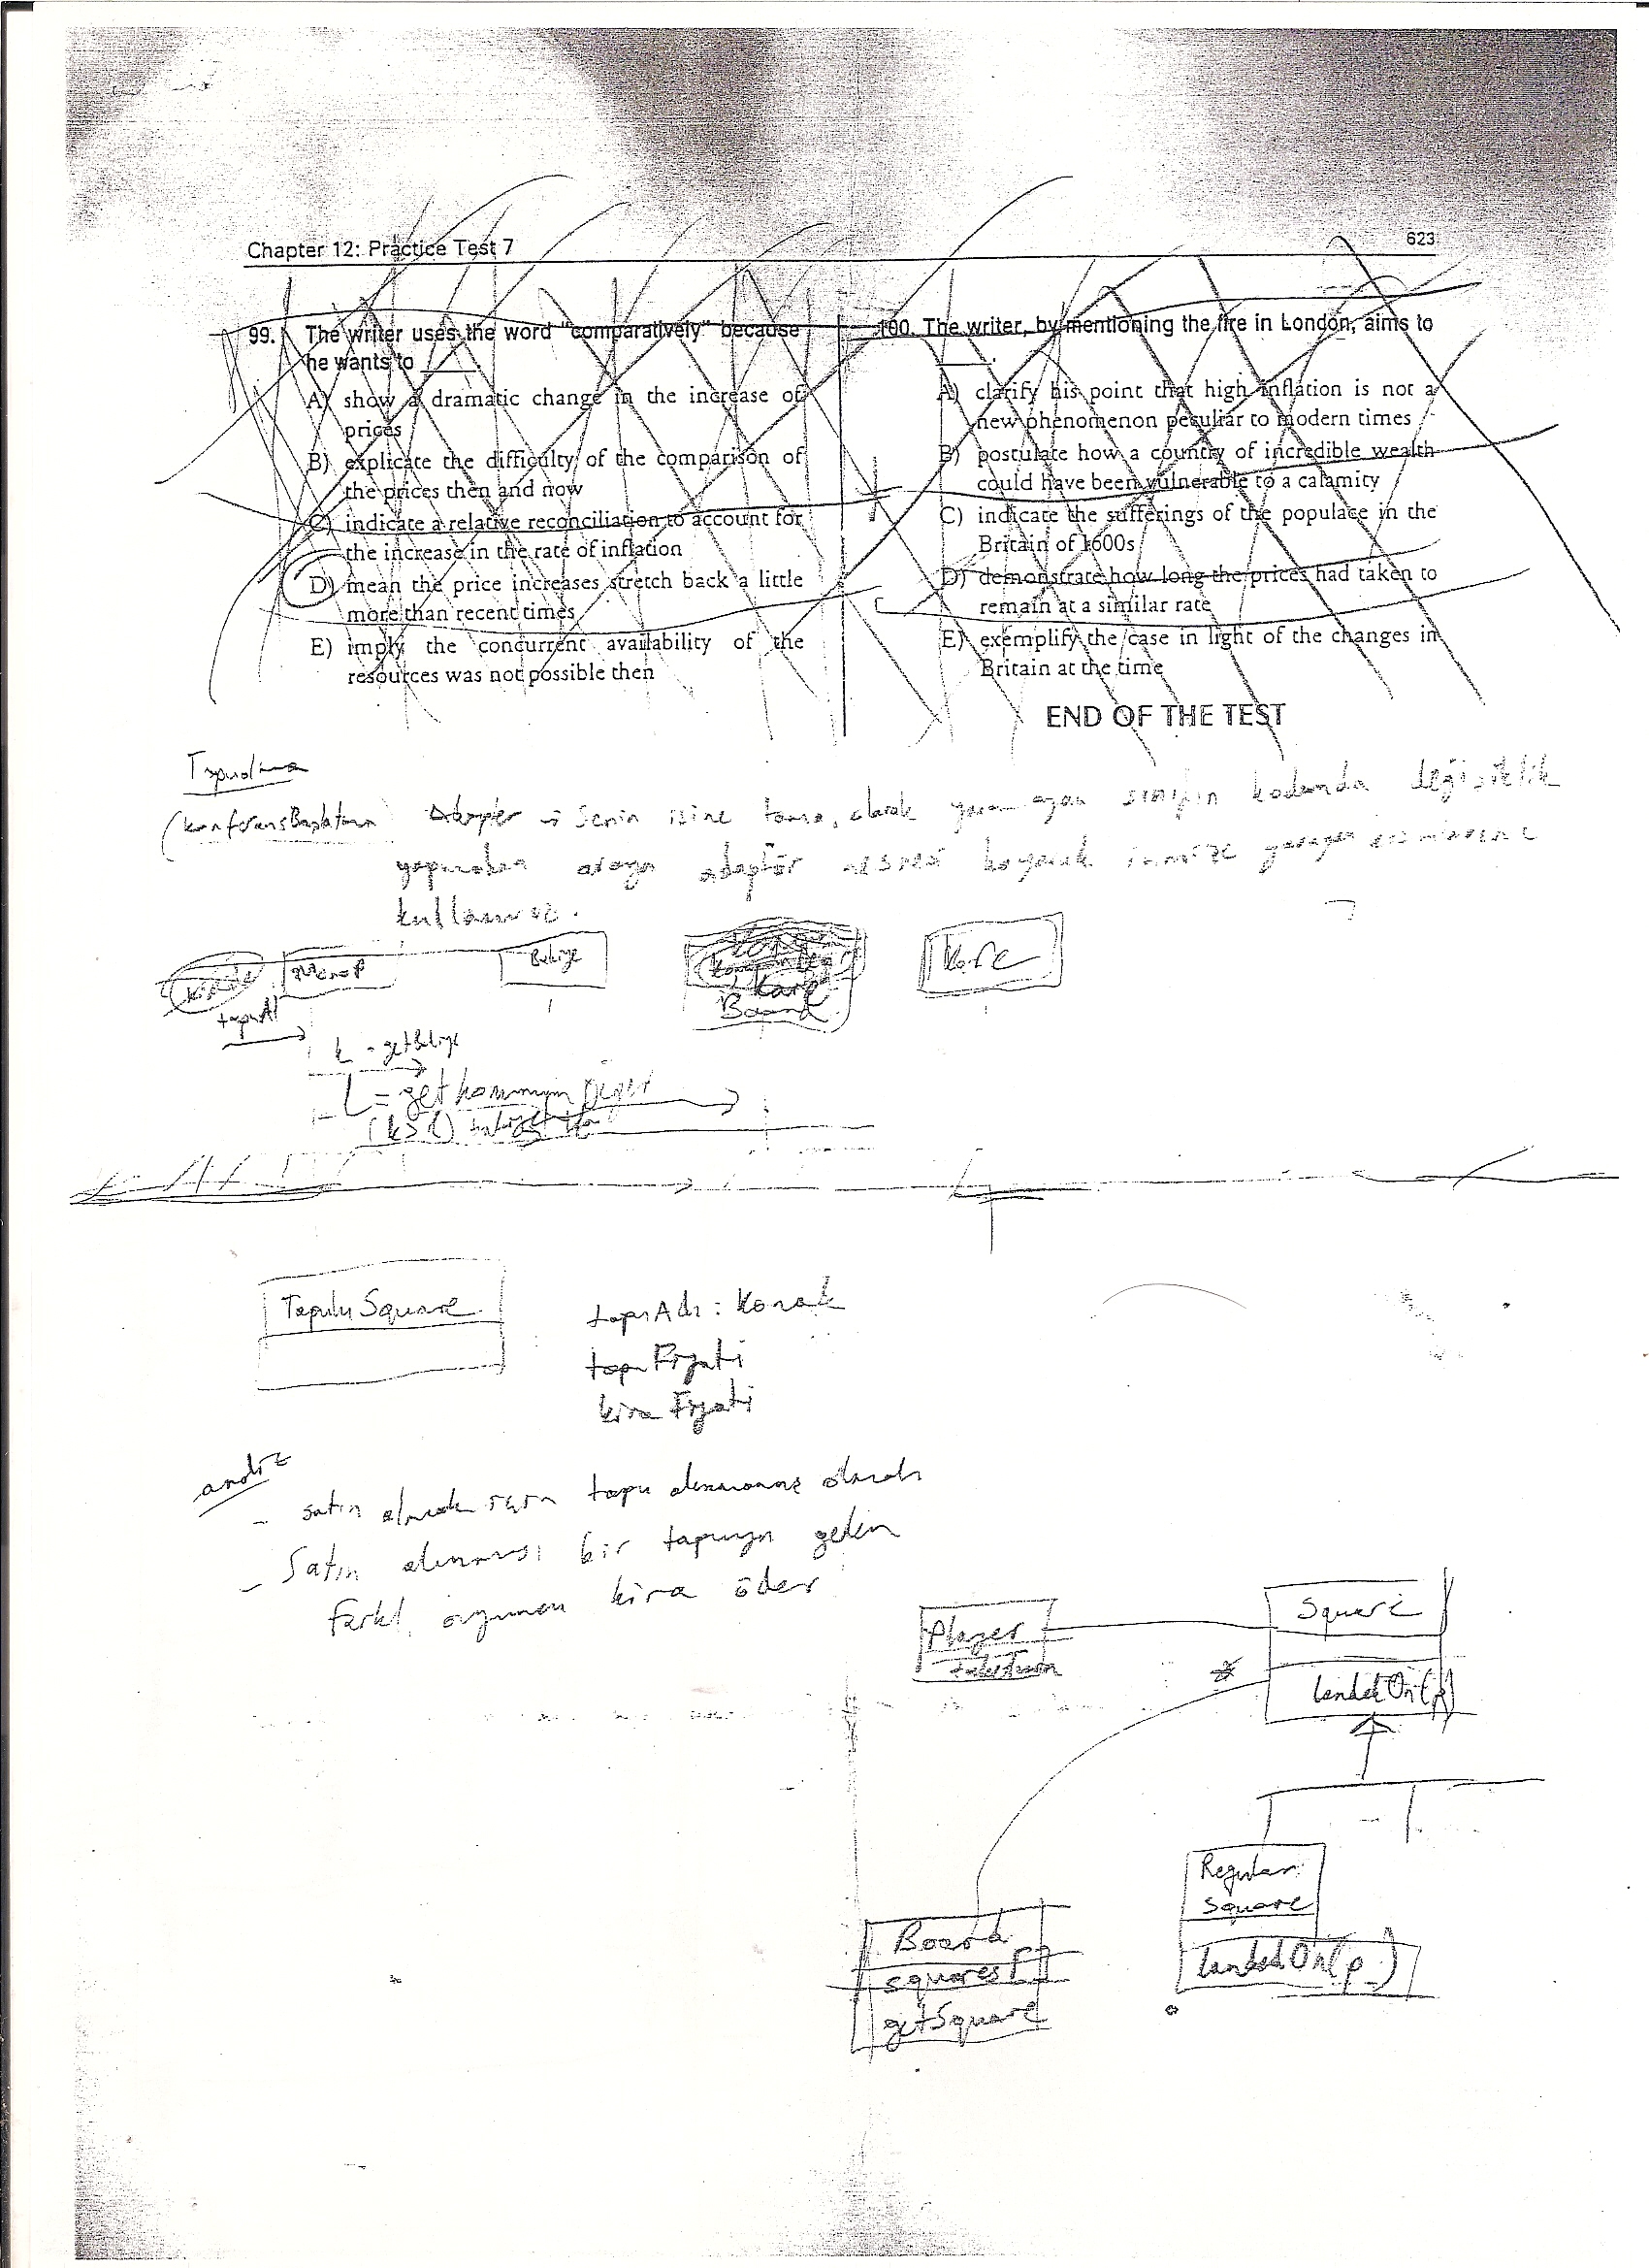 Chapter 12: Practice Test 7
623
99. The writer uses the word "comparatively" because
he wants to ____
A) show a dramatic change in the increase of
prices
B) explicate the difficulty of the comparison of
the prices then and now
C) indicate a relative reconciliation to account for
the increase in the rate of inflation
D) mean the price increases stretch back a little
more than recent times
E) imply the concurrent availability of the
resources was not possible then
100. The writer, by mentioning the fire in London, aims to
____.
A) clarify his point that high inflation is not a
new phenomenon peculiar to modern times
B) postulate how a country of incredible wealth
could have been vulnerable to a calamity
C) indicate the sufferings of the populace in the
Britain of 1600s
D) demonstrate how long the prices had taken to
remain at a similar rate
E) exemplify the case in light of the changes in
Britain at the time
END OF THE TEST
Senin işine olarak sınıfın kodunda değişiklik
yapmadan araya adaptör nesnesi koyarak
kullanırız.
Bakiye
Kare
Board
tapuAl
k = getBakiye
L = get
(k>L)
Tapulu Square
tapuAdı: Konak
tapu Fiyatı
kira Fiyatı
analiz
- satın almak için tapu olmak
- Satın alınmış bir tapuya gelen
farklı oyuncu kira öder
Player
Square
landedOn(p)
*
Regular
square
landedOn(p)
Board
squares
getSquare